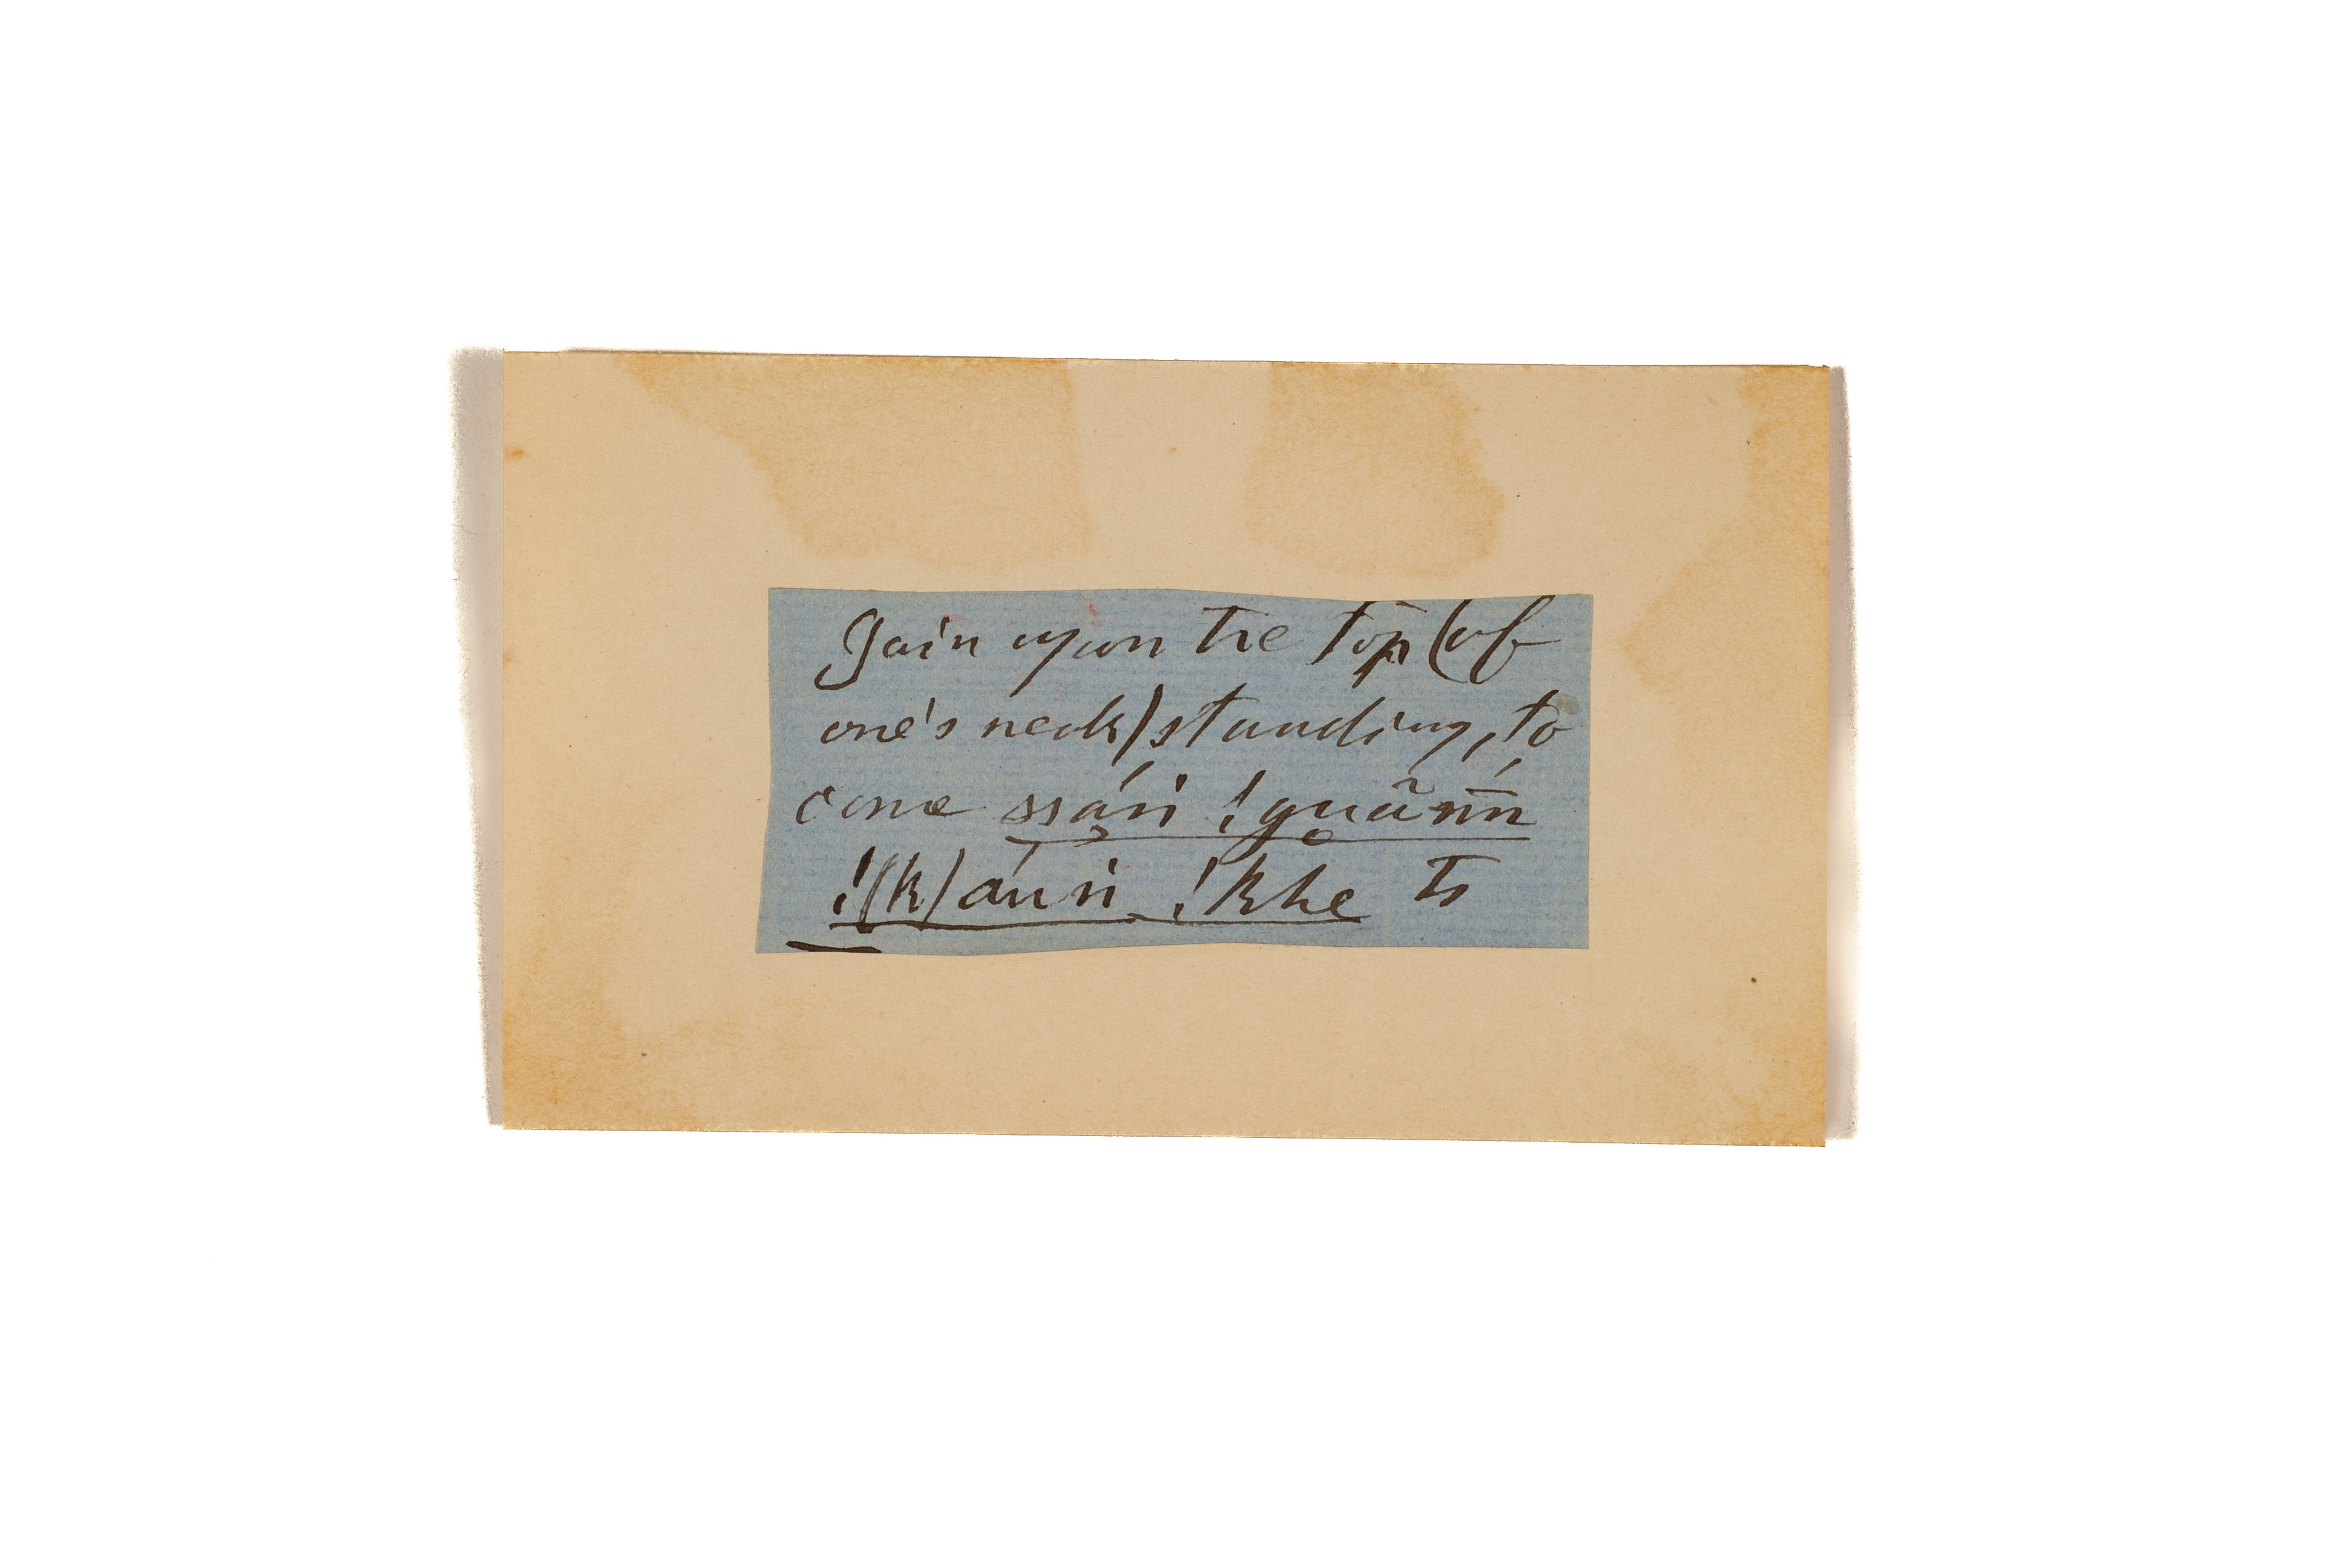 gain upon the top (of
one's neck) standing, to
come ssá́ri !guã́n̄n
!(k)aúsi !khe to